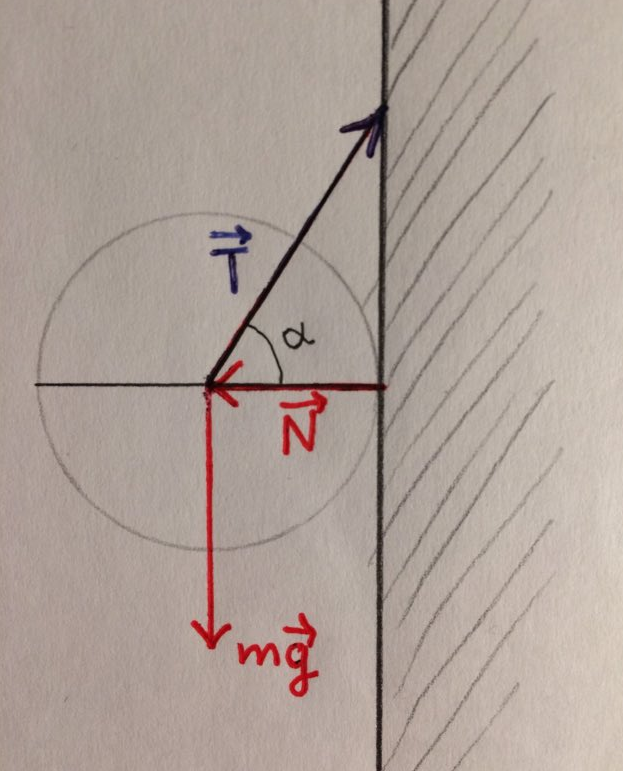 T⃗
α
N⃗
mg⃗